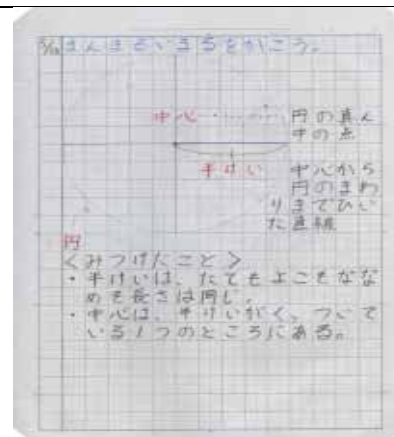 まんまるいまるをかこう。
中心……円の真ん
中の点
半けい
中心から
円のまわ
りまでひい
た直線
円
<みつけたこと>
・半けいは、たてもよこもなな
めも長さは同じ。
・中心は、半けいがくっついて
いる1つのところにある。